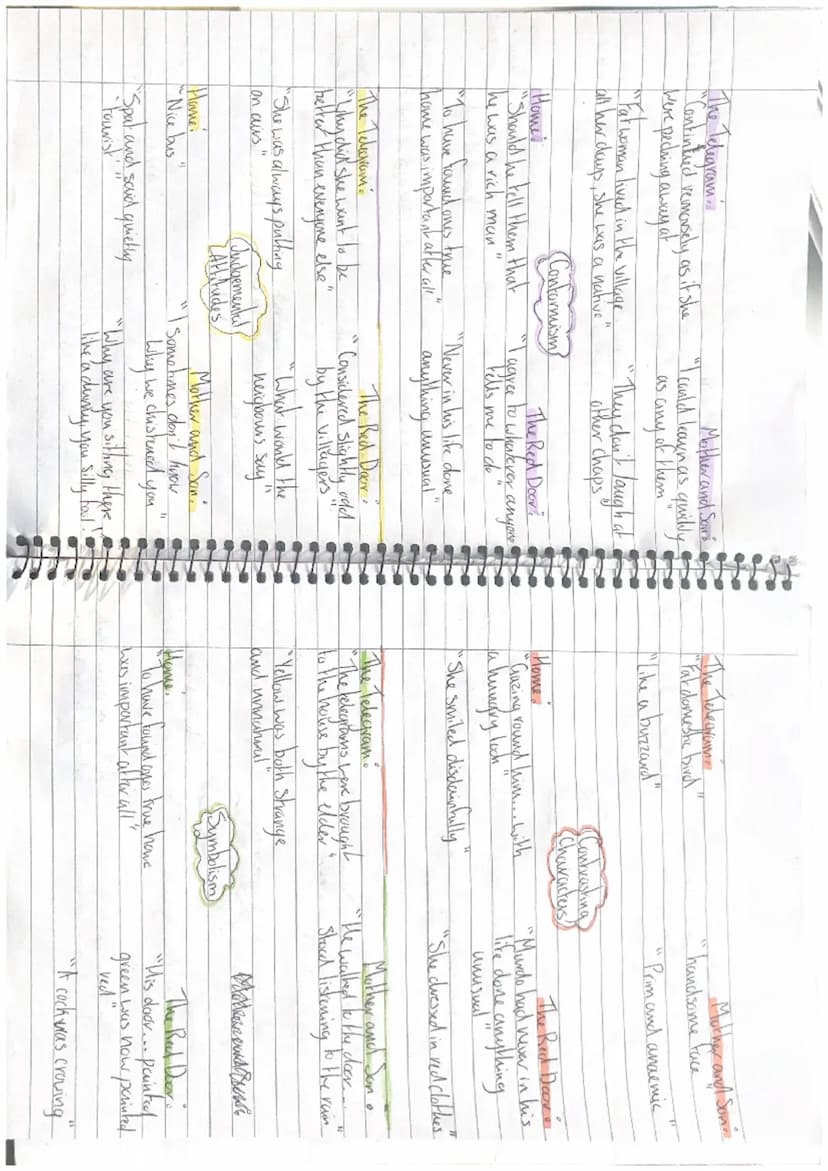 The Telegram:
"Continued remorsely as if she
were pecking away at
"Fat woman lived in the village
all her days, she was a native"
Mother and Son:
"I could learn as quickly
as any of them"
"They don't laugh at
other chaps"
Conformism
Home:
"Should he tell them that
he was a rich man"
"To have found ones true
home was important after all"
The Red Door:
"I agree to whatever anyone
tells me to do"
"Never in his life done
anything unusual"
The Telegram:
"Why did she want to be
better than everyone else"
"She was always putting
on airs"
The Red Door:
"Considered slightly odd
by the villagers"
"What would the
neigbours say"
Judgemental
Attitudes
Home:
"Nice bus"
"Spat and said quietly
'tourist'"
Mother and Son:
"I sometimes don't know
why we christened you"
"Why are you sitting there
like a dummy you silly fool!"
The Telegram:
"Fat domestic bird"
"Like a buzzard"
Mother and Son:
"handsome face"
"Prim and anaemic"
Contrasting
Characters
Home:
"Gazing round him... with
a hungry look"
"She smiled disdainfully"
The Red Door:
"Murdo had never in his
life done anything
unusual"
"She dressed in red clothes"
The Telegram:
"The telegrams were brought
to the house by the elder"
"Yellow was both strange
and unnatural"
Mother and Son:
"He walked to the door...
stood listening to the rain
Symbolism
Home:
"To have found ones true home
was important after all"
The Red Door:
"His door... painted
green was now painted
red"
"A cock was crowing"